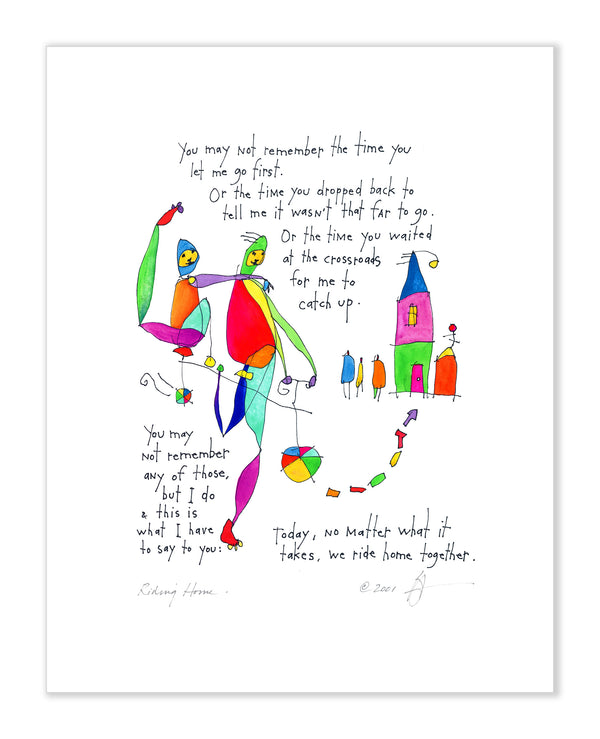 You may not remember the time you
let me go first.
Or the time you dropped back to
tell me it wasn't that far to go.
Or the time you waited
at the crossroads
for me to
catch up.
You may
not remember
any of those,
but I do
& this is
what I have
to say to you:
Today, no matter what it
takes, we ride home together.
Riding Home.
© 2001